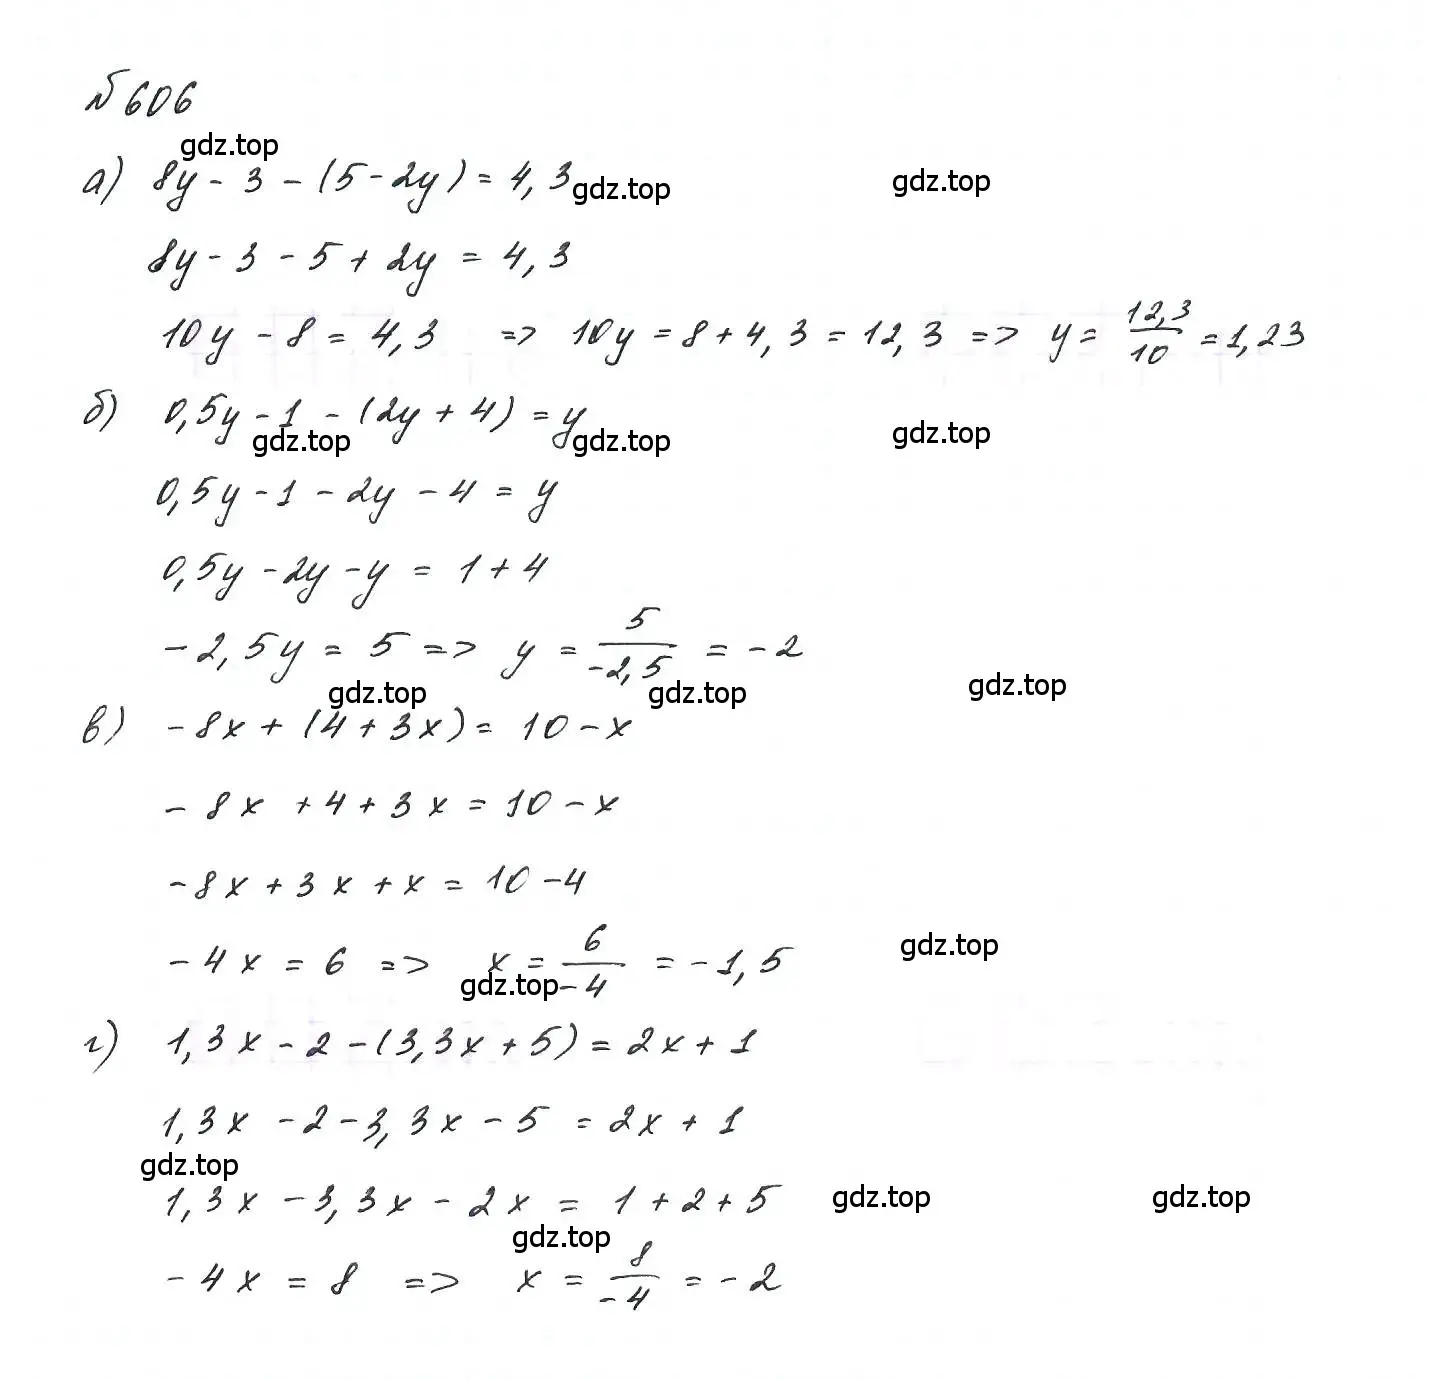 № 606
gdz.top
а) 8y - 3 - (5 - 2y) = 4,3 gdz.top gdz.top
8y - 3 - 5 + 2y = 4,3
10y - 8 = 4,3 => 10y = 8 + 4,3 = 12,3 => y = 12,3/10 = 1,23
б) 0,5y - 1 - (2y + 4) = y
gdz.top gdz.top gdz.top
0,5y - 1 - 2y - 4 = y
0,5y - 2y - y = 1 + 4
-2,5y = 5 => y = 5/-2,5 = -2
gdz.top gdz.top gdz.top
в) -8x + (4 + 3x) = 10 - x
- 8x + 4 + 3x = 10 - x
-8x + 3x + x = 10 - 4
-4x = 6 => x = 6/-4 = -1,5 gdz.top
gdz.top
г) 1,3x - 2 - (3,3x + 5) = 2x + 1
1,3x - 2 - 3,3x - 5 = 2x + 1
gdz.top
1,3x - 3,3x - 2x = 1 + 2 + 5 gdz.top gdz.top
gdz.top
-4x = 8 => x = 8/-4 = -2